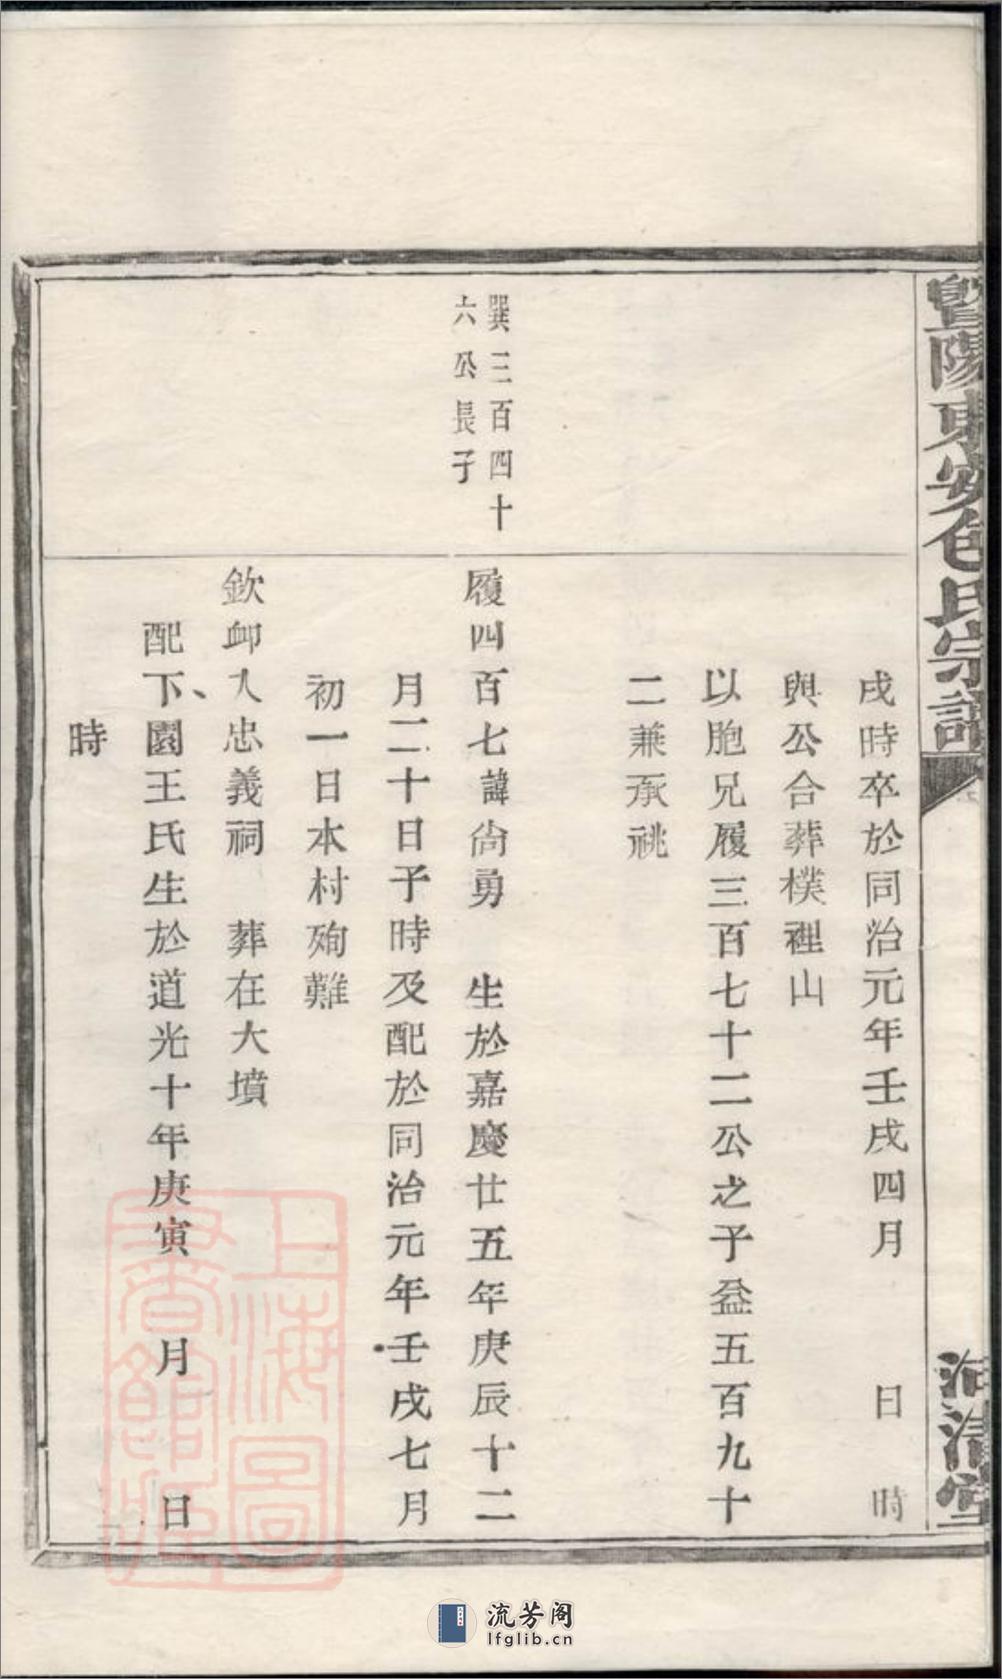 暨陽東安包氏宗譜
河清堂
戌時卒於同治元年壬戌四月 日 時
與公合葬樸裡山
以胞兄履三百七十二公之子益五百九十
二兼承祧
巽三百四十
六公長子
履四百七諱尙勇 生於嘉慶廿五年庚辰十二
月二十日子時及配於同治元年壬戌七月
初一日本村殉難
欽卹入忠義祠 葬在大墳
配下園王氏生於道光十年庚寅 月 日
時
上海圖
書館藏
流芳阁
lfglib.cn